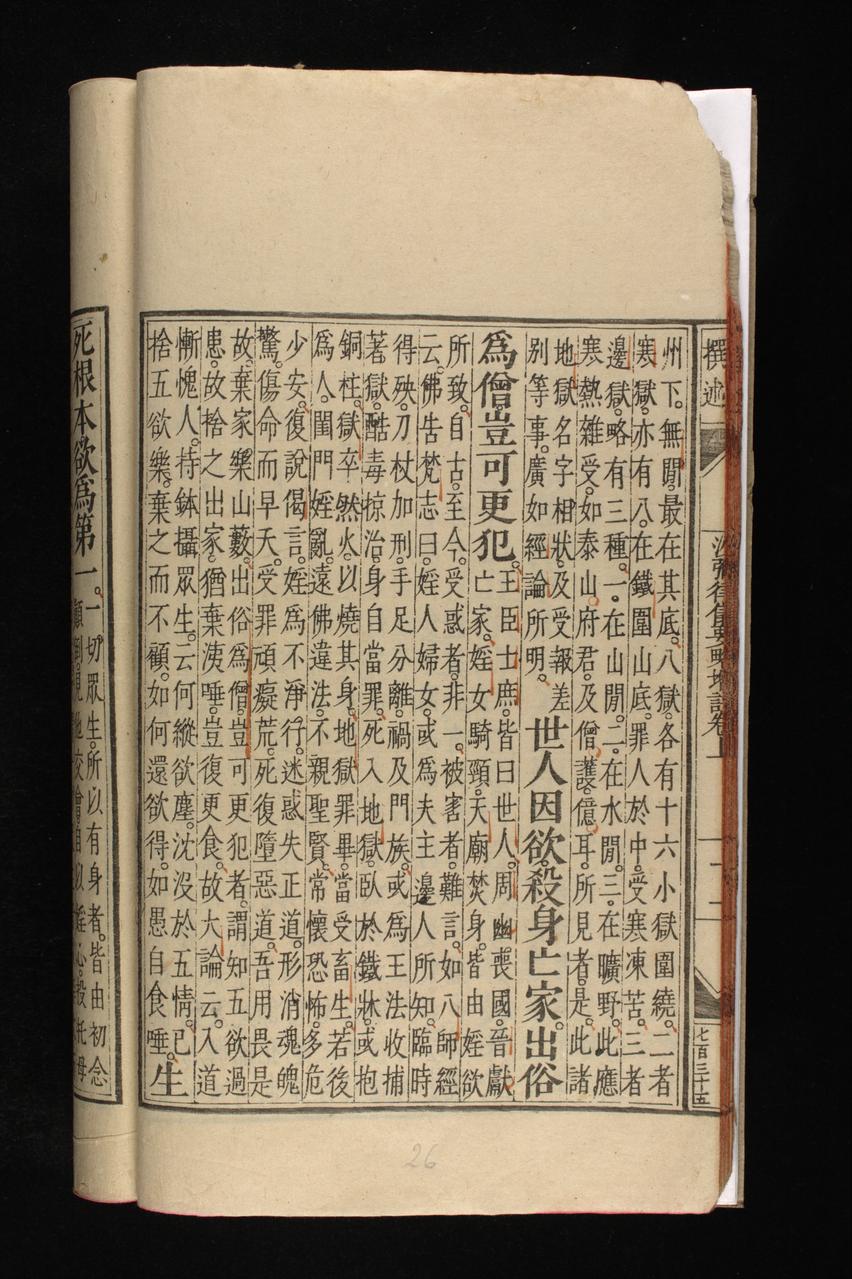 撰述
沙彌律儀要略增註卷上
七百三十五
州下。無閒。最在其底。八獄。各有十六小獄圍繞。二者
寒獄。亦有八。在鐵圍山底。罪人於中。受寒凍苦。三者
邊獄。略有三種。一。在山閒。二。在水閒。三。在曠野。此應
寒熱雜受。如泰山府君。及僧護。億耳。所見者。是。此諸
地獄名字相狀。及受報差
別等事。廣如經論所明。
世人因欲。殺身亡家。出俗
為僧。豈可更犯。
王臣士庶。皆曰世人。周幽喪國。晉獻
亡家。婬女騎頸。天廟焚身。皆由婬欲
所致。自古至今。受惑者。非一。被害者。難言。如八師經
云。佛告梵志曰。婬人婦女。或為夫主邊人所知。臨時
得殃。刀杖加刑。手足分離。禍及門族。或為王法收捕
著獄。酷毒掠治。身自當罪。死入地獄。臥於鐵牀。或抱
銅柱。獄卒然火。以燒其身。地獄罪畢。當受畜生。若後
為人。閨門婬亂。遠佛違法。不親聖賢。常懷恐怖。多危
少安。復說偈言。婬為不淨行。迷惑失正道。形消魂魄
驚。傷命而早夭。受罪頑癡荒。死復墮惡道。吾用畏是
故。棄家樂山藪。出俗為僧。豈可更犯者。謂知五欲過
患。故捨之出家。猶棄洟唾。豈復更食。故大論云。入道
慚愧人。持鉢攝眾生。云何縱欲塵。沈沒於五情。已
捨五欲樂。棄之而不顧。如何還欲得。如愚自食唾。
生
死根本。欲為第一。
一切眾生。所以有身者。皆由初念